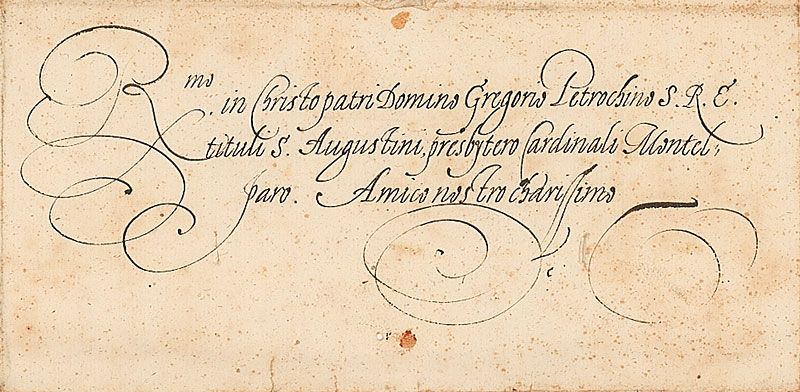 Rmo in Christo patri Domino Gregorio Petrochino S. R. E.
tituli S. Augustini, presbytero Cardinali Montel,,
paro. Amico nostro charissimo